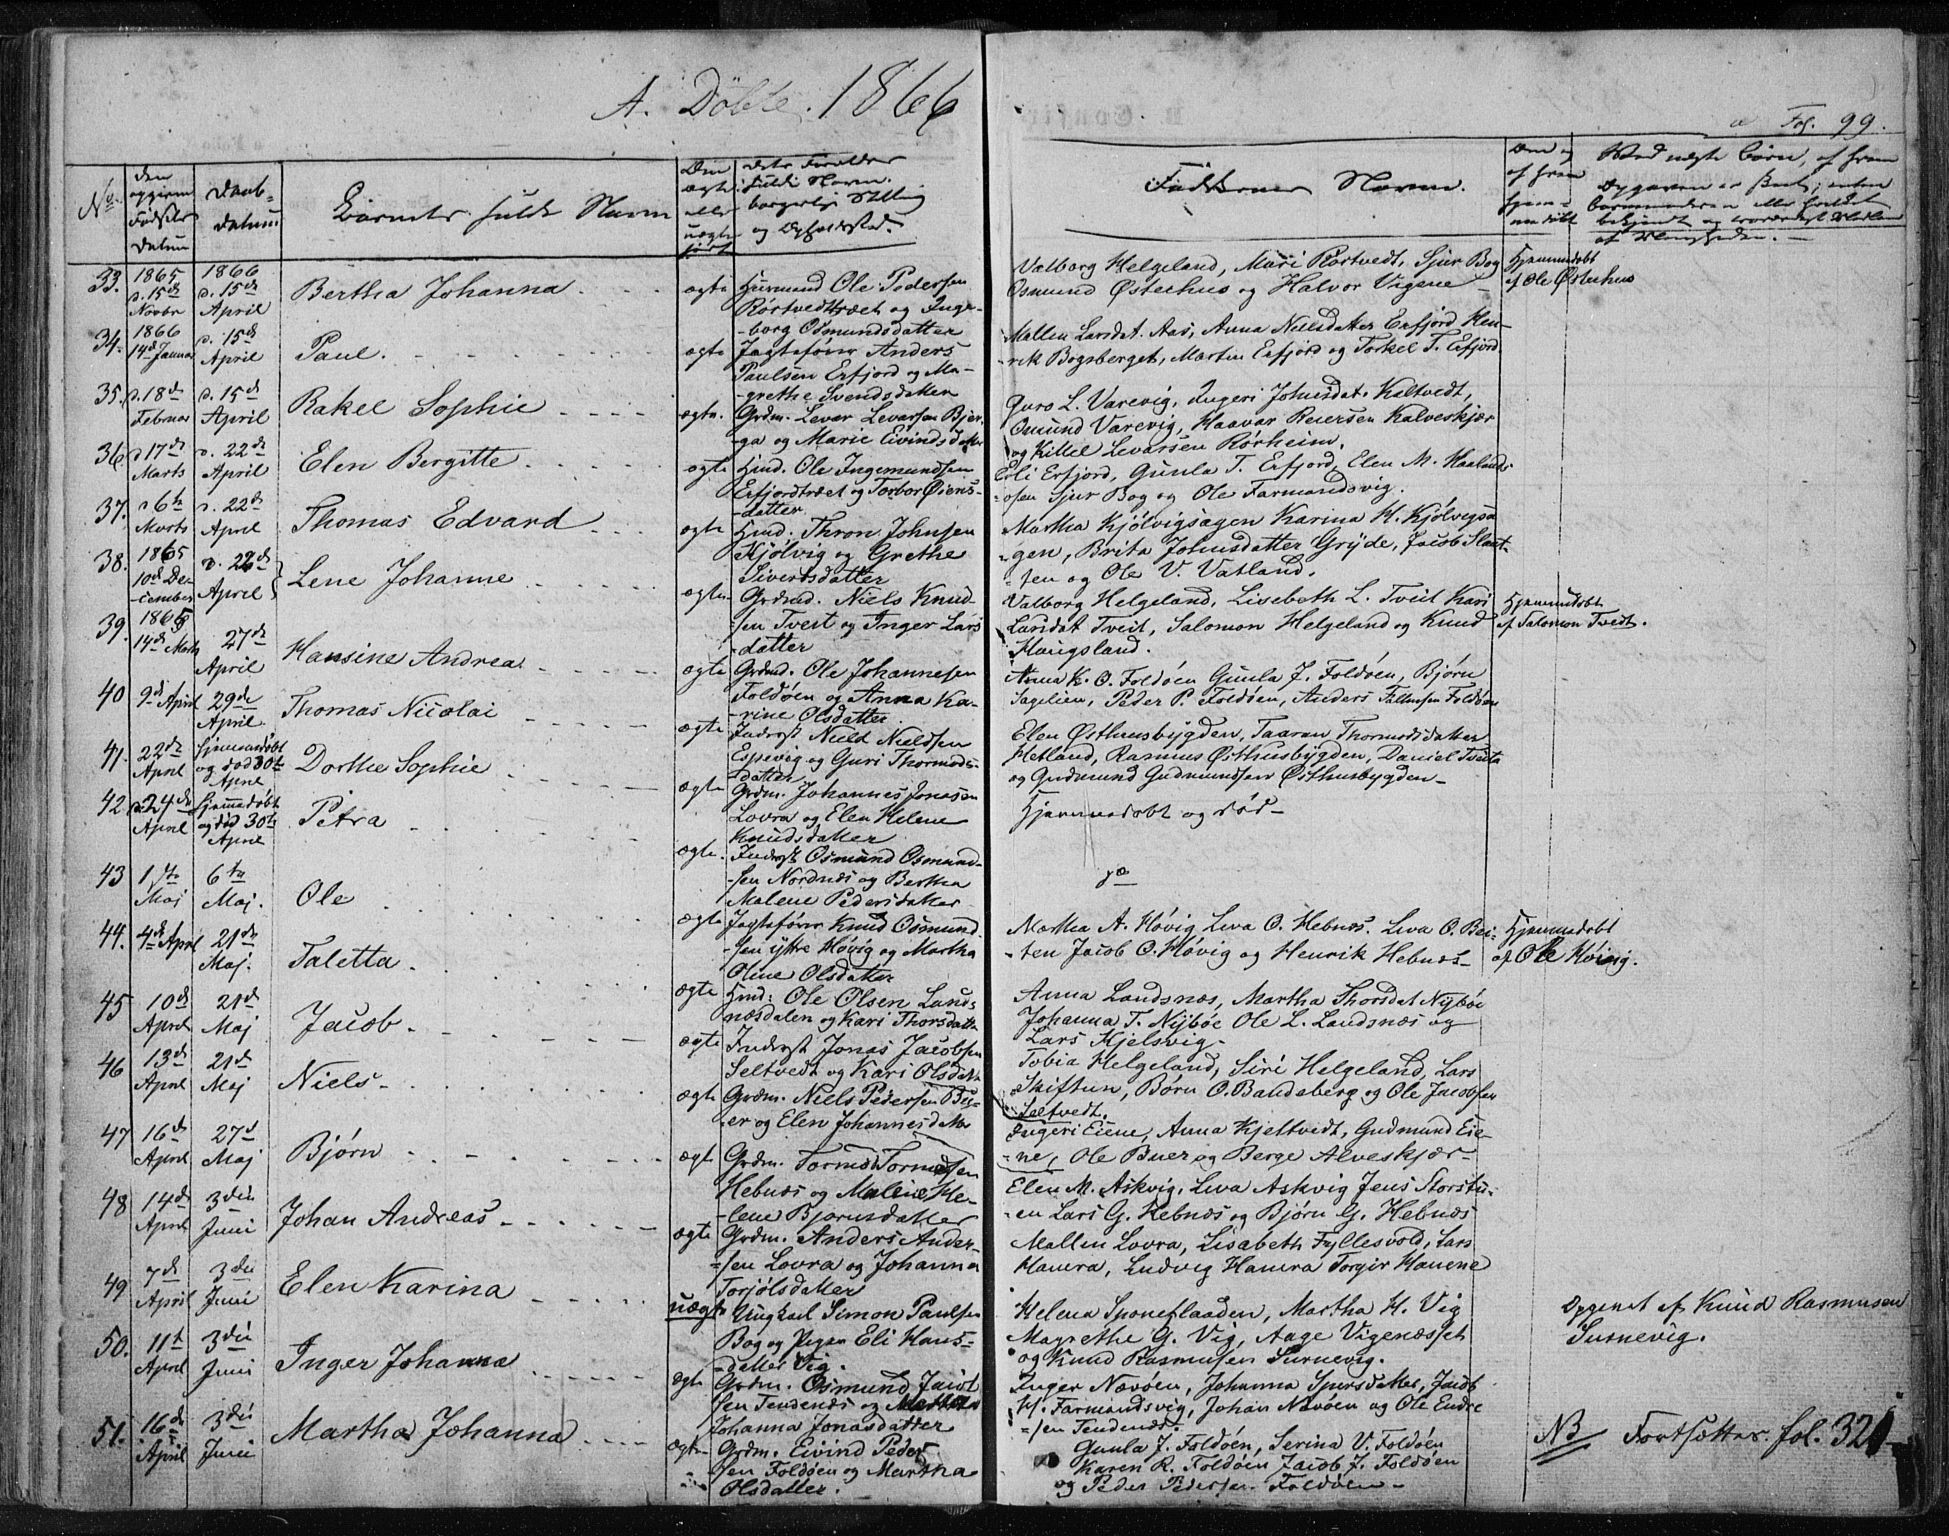 A. Döbte. 1866
Fol. 99.
No.
den opgivne Fødsels Datum
Daab-datum
Barnets fulde Navn
Om ægte eller uægte født
dets Forældres fulde Navn. borgerlige Stilling og Opholdsted.
Faddernes Navne.
33. 1865 d. 15de Novbr
1866 d. 15de April
Bertha Johanna
ægte
Huusmand Ole Pedersen
Rörtvedttræet og Inge-
-borg Osmundsdatter
Valborg Helgeland, Mari Rörtvedt, Sjur Bog
Osmund Østerhus og Halvor Vigene
Hjemmedøbt
af Ole Østerhus
34. 1866 14d Januar
d. 15de April
Paul.
ægte
Jagtefører Anders
Paulsen Erfjord og Ma-
-grethe Svendsdatter
Mallen Larsdat. Aas, Anna Nielsdatter Erfjord Hen-
-rik Bogsberget, Marten Erfjord og Torkel T. Erfjord
35. d. 18de Februar
d. 15de April
Rakel Sophie
ægte.
Grdm. Levar Levarsen Bjer-
-ga og Marie Eivindsdatter
Guro L. Varevig, Ingeri Johnsdat. Kaltvedt,
Osmund Varevig, Haavar Reiersen Kalveskjær
og Kittel Levarsen Rörheim.
36. d 17de Marts
d. 22de April
Elen Bergitte
ægte
Hmd. Ole Ingemundsen
Erfjordtræet og Torbor Øiens-
-datter
Eli Erfjord, Gunla T. Erfjord, Elen M. Haaland-
-osen Sjur Bog og Ole Farmandsvig.
37. d 6te Marts
d. 22de April
Thomas Edvard
ægte
Hmd. Thron Johnsen
Kjölvig og Grethe
Sivertsdatter
Martha Kjölvigsagen Karina H. Kjölvigsa
-gen, Brita Johnsdatter Gryde, Jacob Slaat-
-sen og Ole V. Vatland.
38. 1865 10de December
d. 22de April
Lene Johanne
ægte
Grdmd. Niels Knud-
-sen Tveit og Inger Lars
-datter
Valborg Helgeland, Lisebeth L. Tveit Kari
Larsdat Tveit, Salomon Helgeland og Knud
Haugsland.
Hjemmedøbt
af Salomon Tvedt.
39. 1866 14de Marts
27de April
Hansine Andrea
ægte
Grdmd. Ole Johannesen
Foldöen og Anna Ka-
-rine Olsdatter.
Anna K. O. Foldöen Gunla J. Foldöen, Björn
Sagelien, Peder P. Foldöen, Anders Foldöen
40 9de April
29de April
Thomas Nicolai
ægte
Inderst Niels Nielsen
Espevig og Guri Thormods-
datter
Elen Østhusbygden, Taaran Thormodsdatter
Hetland, Rasmus Østhusbygden, Daniel Tveita
og Gudmund Gudmundsen Østhusbygden
41. 22de April
Hjemmedöbt
og död 30te
April
Dorthe Sophie
ægte
Grdm. Johannes Jonasen
Lovra og Elen Helene
Knudsdatter
Hjemmedöbt og död
42. d. 24de April
Hjemmedöbt
og död 30te
April
Petra
ægte.
Inderst Osmund Osmund-
-sen Nordnæs og Bertha
Malene Pedersdatter
do
43 1ste Maj
6te Maj.
Ole
ægte
Jagtefører Knud Osmund
-sen ytre Hövig og Martha
Oline Olsdatter
Martha A. Hövig Liva O. Hebnes. Liva O. Bei-
-ten Jacob O. Hövig og Henrik Hebnes
Hjemmedøbt
af Ole Hövig.
44. 4de April
21de Maj.
Taletta.
ægte
Hmd: Ole Olsen Lands-
næsdalen og Kari Thorsdatter
Anna Landsnæs, Martha Thorsdat Nyböe
Johanna T. Nyböe Ole L. Landsnæs og
Lars Hjelsvig.
45 10de April
21de Maj
Jacob
ægte
Inderst Jonas Jacobsen
Seltvedt og Kari Olsdatter
Tobia Helgeland, Siri Helgeland, Lars
Skiftun, Børn O. Bandeberg og Ole Jacobsen
Seltvedt.
46 13de April
21de Maj
Niels
ægte
Grdm. Niels Pedersen Bu-
-er og Elen Johannesdatter
Ingeri Eiene, Anna Kjeltvedt, Gudmund Eie-
-ne, Ole Buer og Berge Alveskjær
47 16de April
27de Maj
Bjørn
ægte
Grdm. Tormod Tormodsen
Hebnæs og Malene He-
-lene Bjørnsdatter
Elen M. Askvig, Liva Askvig Jens Storstu-
-en Lars G. Hebnæs og Bjørn G. Hebnæs
48 14de April
3die Juni
Johan Andreas
ægte
Grdm. Anders Ander-
-sen Lovra og Johanna
Torjølsdatter
Mallin Lovra, Lisabeth Fyllesvold, Lars
Havera, Ludvig Havera Torgier Havene
49 7de April
3die Juni
Elen Karina
uægte
Ungkarl Simon Paulsen
Bog og Pigen Eli Hans-
-datter Vig.
Helena Sponeflaaden, Martha H. Vig
Magrethe G. Vig, Aage Vigenæsset
og Knud Rasmusen Surnevig.
Opgivet af Knud Rasmusen
Surnevig.
50. 11te April
3die Juni
Inger Johanna
ægte
Grdm. Osmund Jacob
-sen Tendenes og Martha
Johanna Jonasdatter
Inger Nævöen, Johanna Sjursdatter, Jacob
H. Farmandsvig, Johan Nævöen og Ole Endre
-sen Tendenes.
51. 16de April
3die Juni
Martha Johanna
ægte
Grdm. Eivind Peder
-sen Foldöen og Martha
Olsdatter.
Gunla J. Foldöen, Serina V. Foldöen
Karen R. Foldöen Jacob J. Foldöen
og Peder Pedersen Foldöen
NB Fortsættes fol. 321